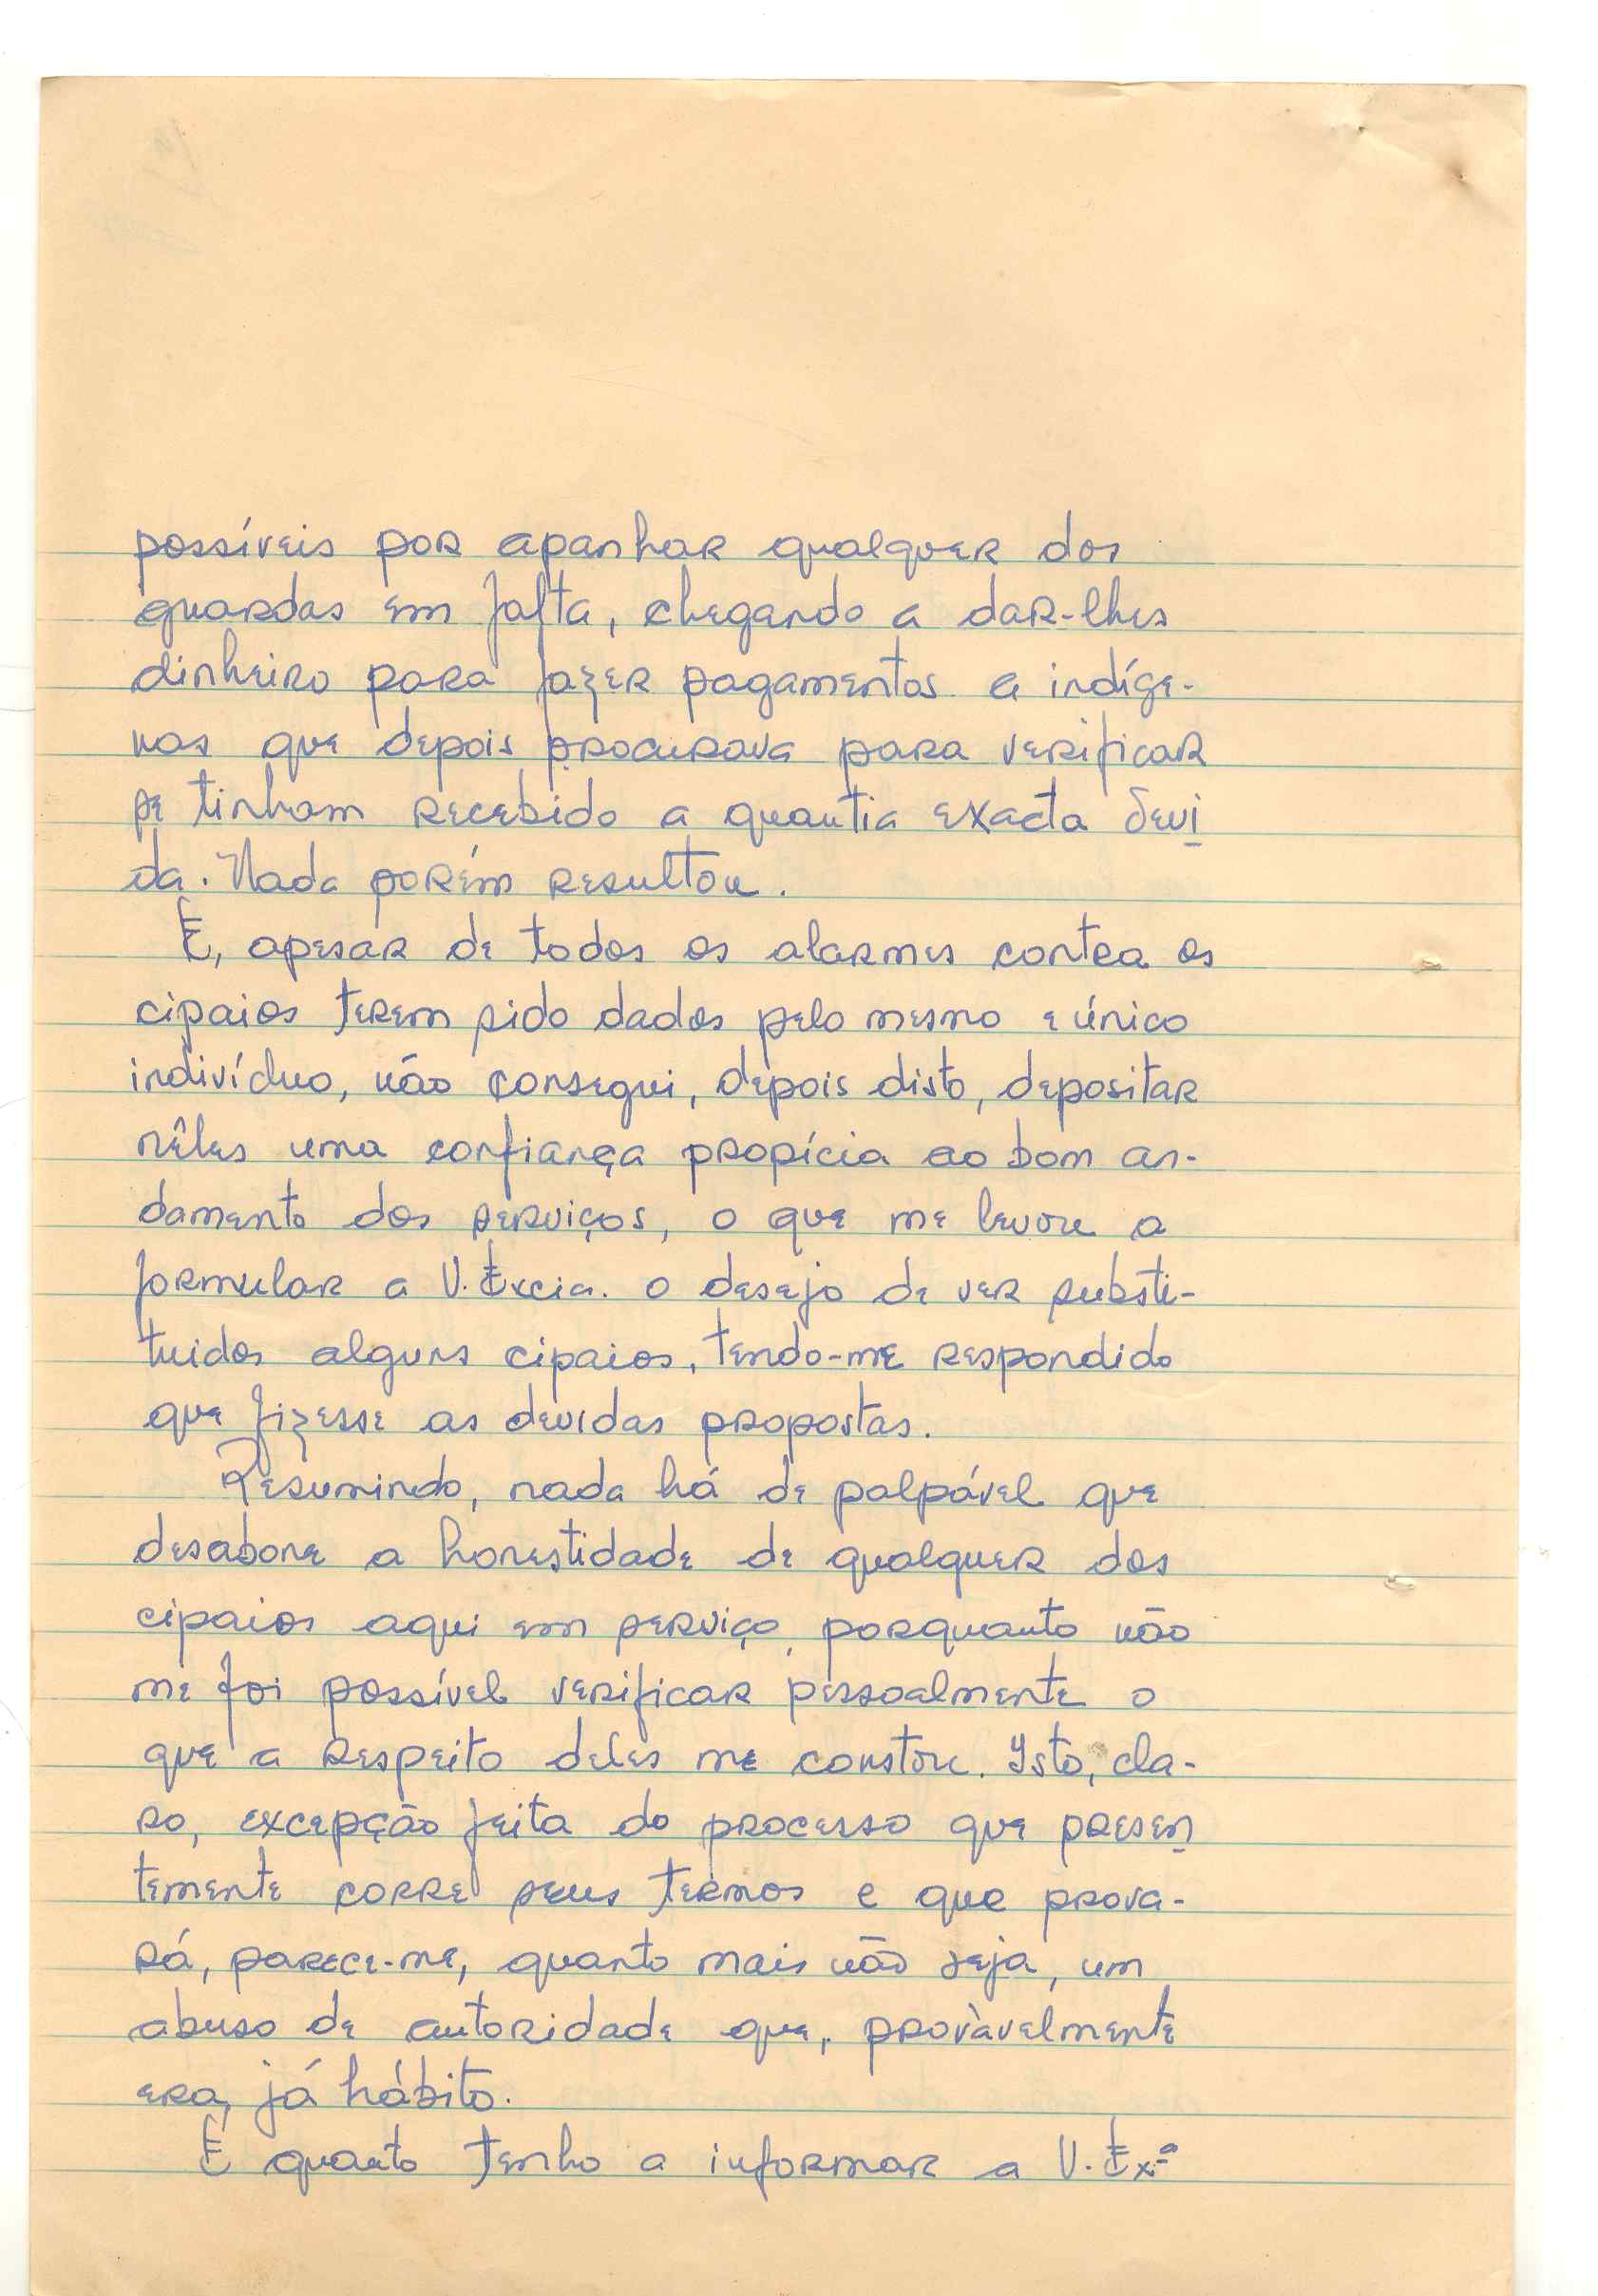 possíveis por apanhar qualquer dos
guardas em falta, chegando a dar-lhes
dinheiro para fazer pagamentos a indíge-
nas que depois procurava para verificar
se tinham recebido a quantia exacta devi
da. Nada porém resultou.
E, apesar de todos os alarmes contra os
cipaios terem sido dados pelo mesmo e único
indivíduo, não consegui, depois disto, depositar
nêles uma confiança propícia ao bom an-
damento dos serviços, o que me levou a
formular a V. Excia. o desejo de ver substi-
tuidos alguns cipaios, tendo-me respondido
que fizesse as devidas propostas.
Resumindo, nada há de palpável que
desabone a honestidade de qualquer dos
cipaios aqui em serviço, porquanto não
me foi possível verificar pessoalmente o
que a respeito deles me constou. Isto, cla-
ro, excepção feita do processo que presen
temente corre seus termos e que prova-
rá, parece-me, quanto mais não seja, um
abuso de autoridade que, provàvelmente
era, já hábito.
E quanto tenho a informar a V. Ex.ª